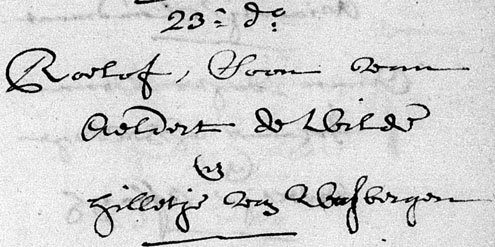 23: do
Roelof, Soon van
Aeldert de Wilde
en
hilletje van